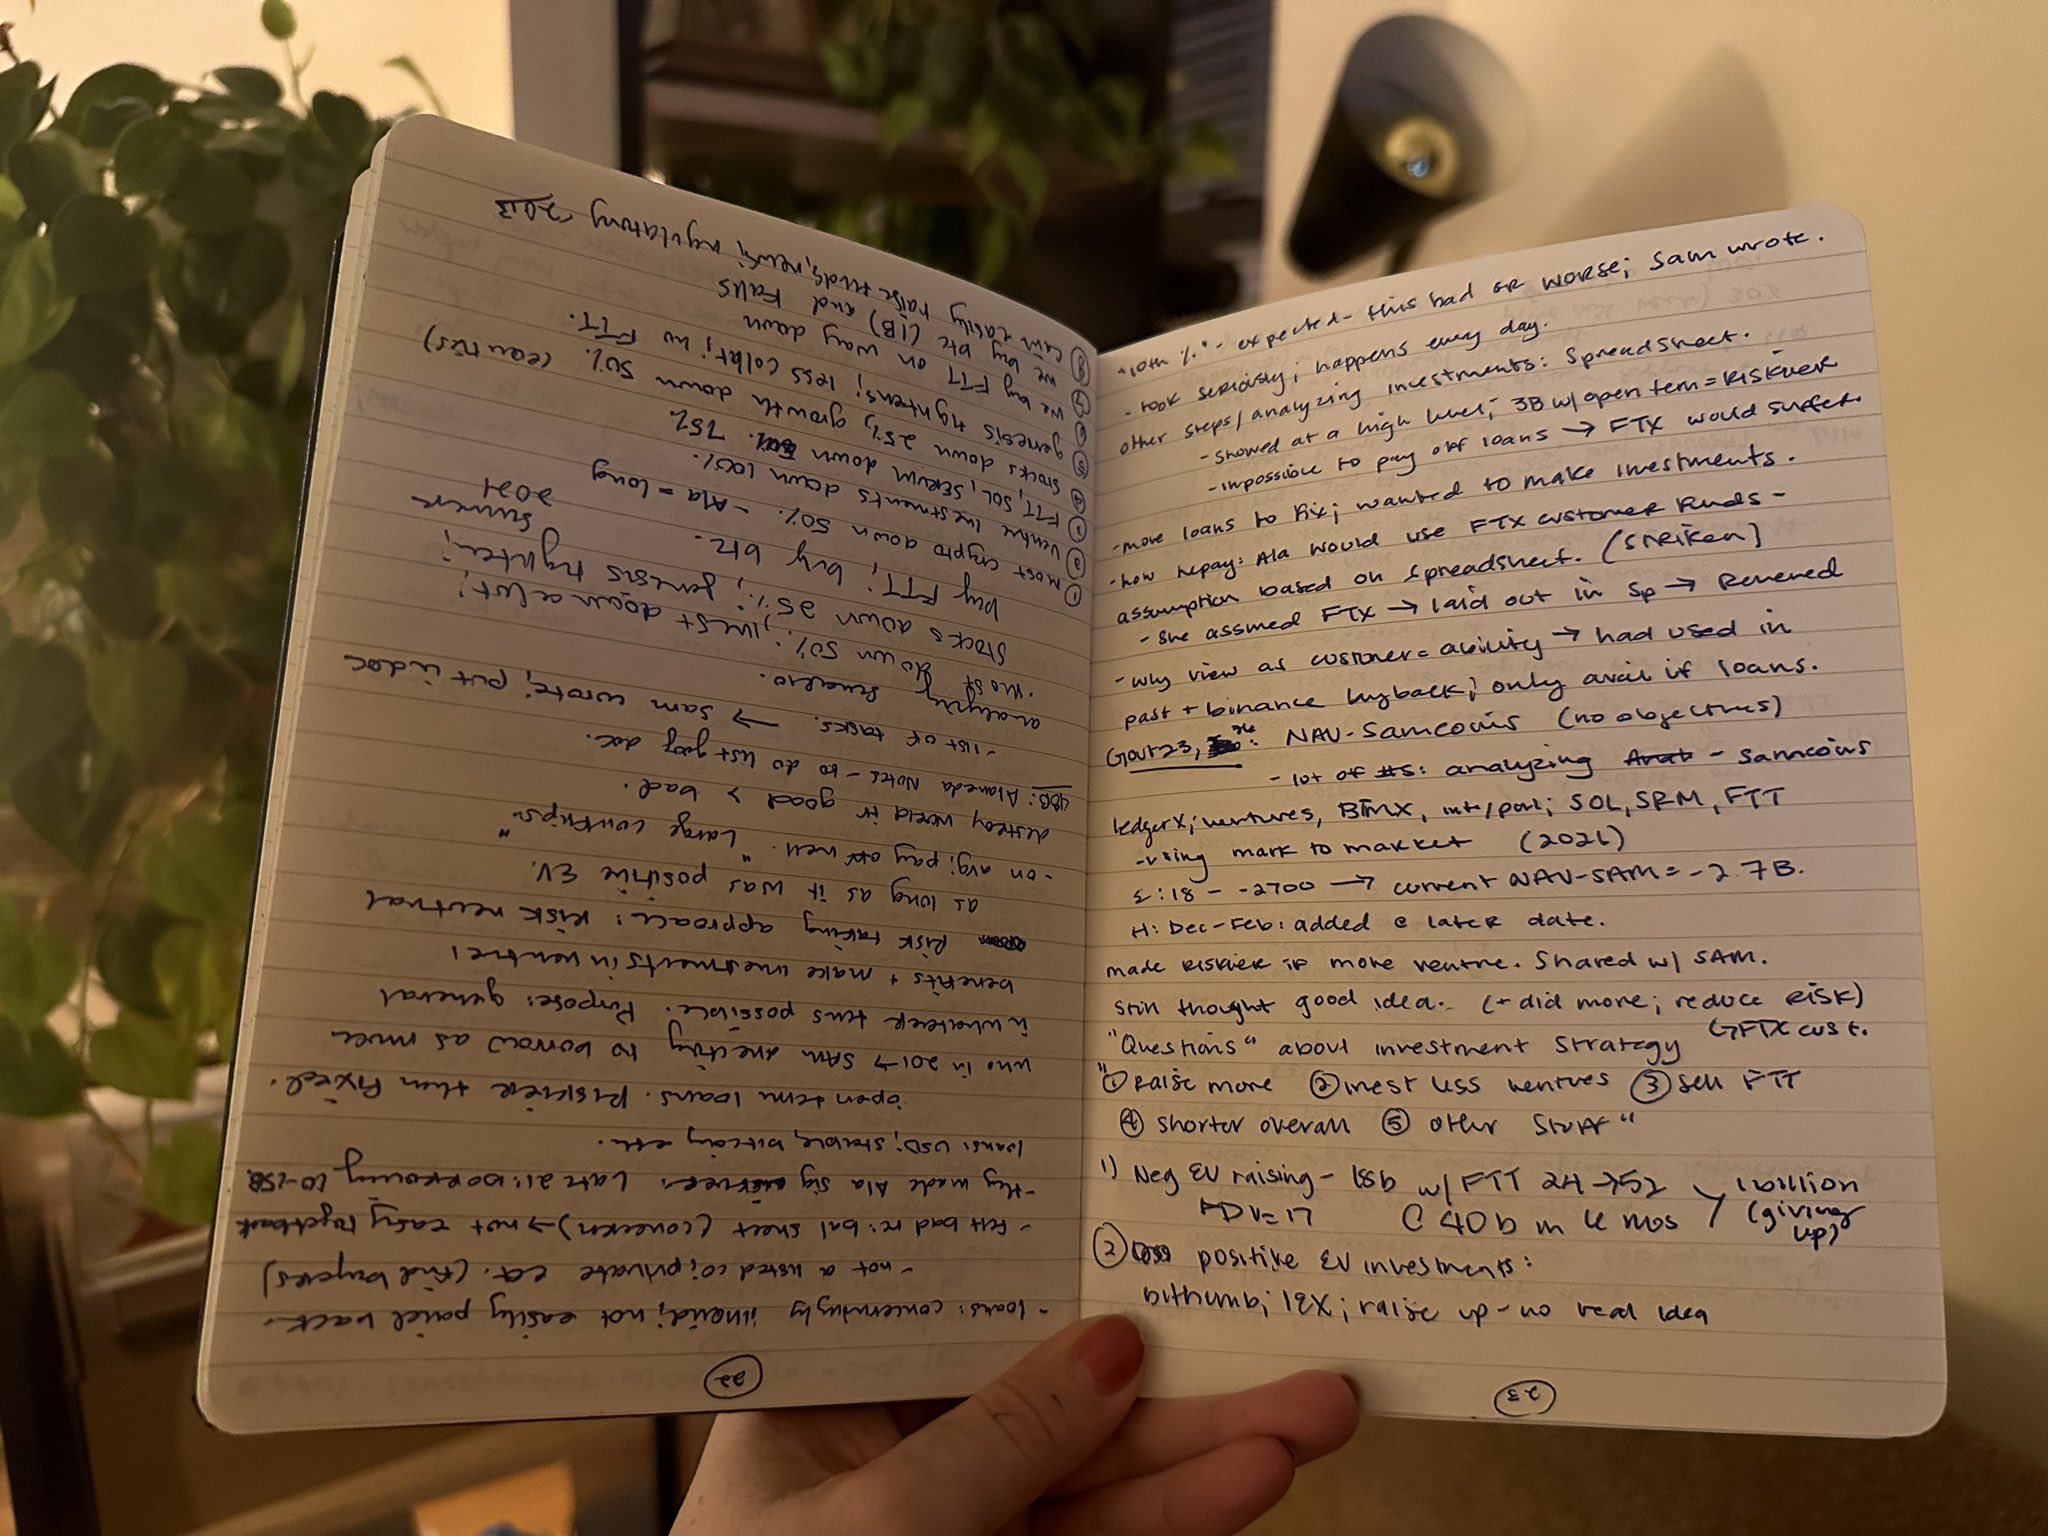 22
- loans: concerningly illiquid; not easily paid back.
- not a listed co; private eq. (find buyers)
- felt bad re: bal sheet (concern) → not easy to get back
- they made Ala sig Late 21: borrowing 10-15B
loans: USD; stable, bitcoin, eth.
open term loans. Riskier than fixed.
who in 20 → SAM directing to borrow as much
in whatever tens possible. Purpose: general
benefits + make investments in venture;
Risk taking approach: Risk neutral
as long as it was positive EV.
- on avg; pay off well. "Large coinflips."
destroy world if good > bad.
48B: Alameda Notes - to do list goog doc.
- list of tasks. → Sam wrote; put in doc
analyzing scenario.
· Most down 50%; invest down a lot;
Stocks down 25%; genesis tighten;
buy FTT; buy btc. 2021
① most crypto down 50%. - Ala = long
② Ventre investments down 100%.
③ FTT, SOL, SERUM down 75%
④ Stocks down 25%, growth down 50%. (equities)
⑤ genesis tightens; less collat; no FTT.
⑥ we buy FTT on way down
⑦ we buy btc (1B) and Falls
⑧ can't easily raise funds; news, regulatory
"10th %." - expected - this bad or worse; Sam wrote.
- took seriously; happens every day.
other steps/analyzing investments: Spreadsheet.
- showed at a high level; 3B w/ open term = Riskier
- impossible to pay off loans → FTX would suffer.
- more loans to fix; wanted to make investments.
- how repay: Ala would use FTX customer funds -
assumption based on spreadsheet. (Striken]
- she assumed FTX → laid out in Sp → Renewed
- why view as customer = ability → had used in
past + binance buyback; only avail if loans.
Govt 23, : NAV-Samcoins (no objections)
- lot of #s: analyzing - Samcoins
ledgerX; ventures, BTMX, int/pol; SOL, SRM, FTT
- using mark to market (2021)
E:18 - -2700 → current NAV-SAM = -2.7B.
H: Dec-Feb: added @ later date.
made riskier if more ventre. Shared w/ SAM.
Still thought good idea. (+ did more; reduce RISK)
"Questions" about investment Strategy GFTX cust.
"① Raise more ② invest less ventres ③ sell FTT
④ shorter overall ⑤ other Stuff"
1) Neg EV raising - 18b w/ FTT 24 → 52 1 billion
FDV=17 @ 40b in mos (giving up)
② positive EV investments:
bithumb; IEX; raise up - no real idea
23